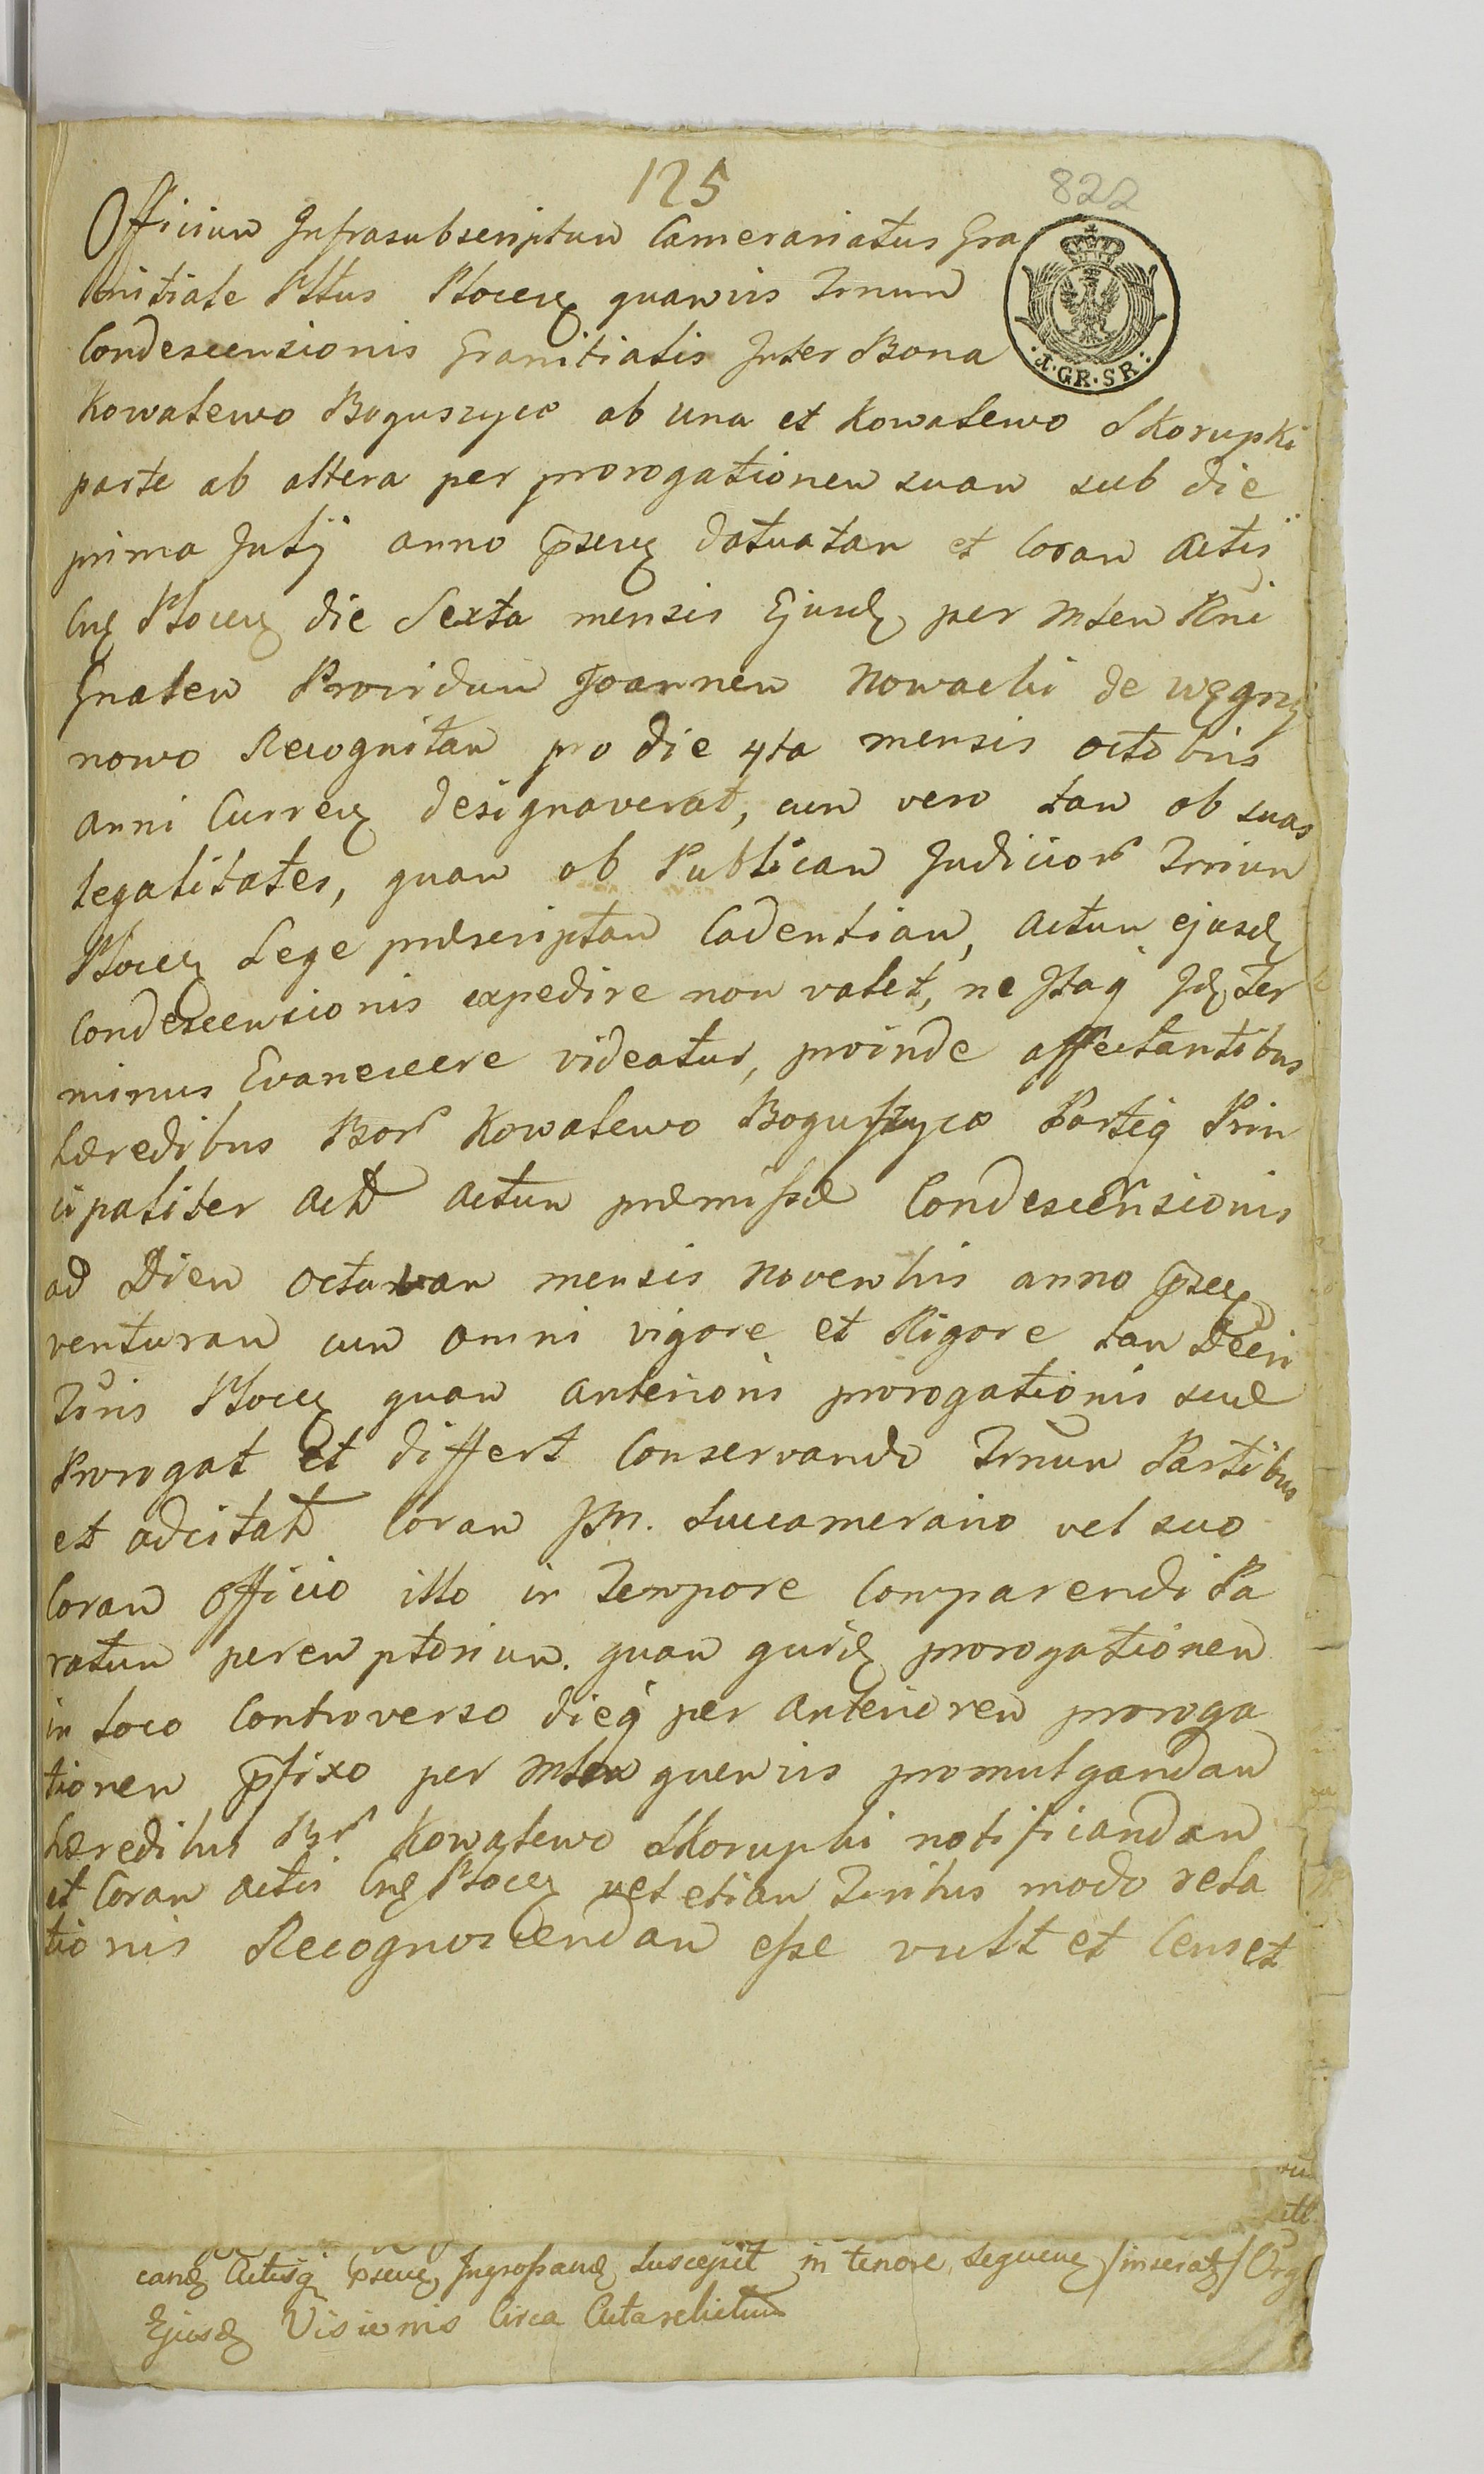 125
822
Officium Infrasubscriptum Camerariatus Gra
nitiale Pttus Plocen quamvis Trnum
Condescensionis Granitialis Inter Bona
·4·GR·SR·
Kowalewo Boguszyce ab una et Kowalewo Skorupki
parte ab altera per prorogationem suam sub die
prima Julij anno pseng datuatam et Coram Actis
Cng Plocen die Sexta mensis Ejusd per Mtem Rni
Gnalem Providum Joannem Nowacki de Węgrzy
nowo Recognitam pro die 4ta mensis octobris
anni Curren designaverat, cum vero tam ob suas
legalitates, quam ob Publicam Judicior Trrium
Plocen Lege præscriptam Cadentiam, Actum ejusd
Condescensionis expedire non valet, ne Itaq Id Ter
minus Evanescere videatur, proinde affectantibus
hæredibus Bor Kowalewo Boguszyce Parteq Prin
cipaliter Act Actum præmissæ Condescensionis
ad Diem octavam mensis novembris anno psen
venturam cum omni vigore et Rigore tam Decri
Tris Plocen quam anterioris prorogationis suæ
Prorogat et differt Conservando Trnum Partibus
et adcitat Coram JM. Succamerario vel suo
Coram officio illo in Tempore Comparendi Pa
ratum peremptorium. quam quid prorogationem
in Loco Controverso dieq per anteriorem proroga
tionem pfixo per Mtem quemvis promulgandam
hæredibus Br Kowalewo Skorupki notificandam
et Coram actis Cng Plocen vel etiam Trritus modo rela
tionis Recognoscendam esse vult et Censet
cand Actisq psen Ingrossand Suscepit in tenore sequen /inserat/ Org
Ejusd Visionis Circa Acta relictum